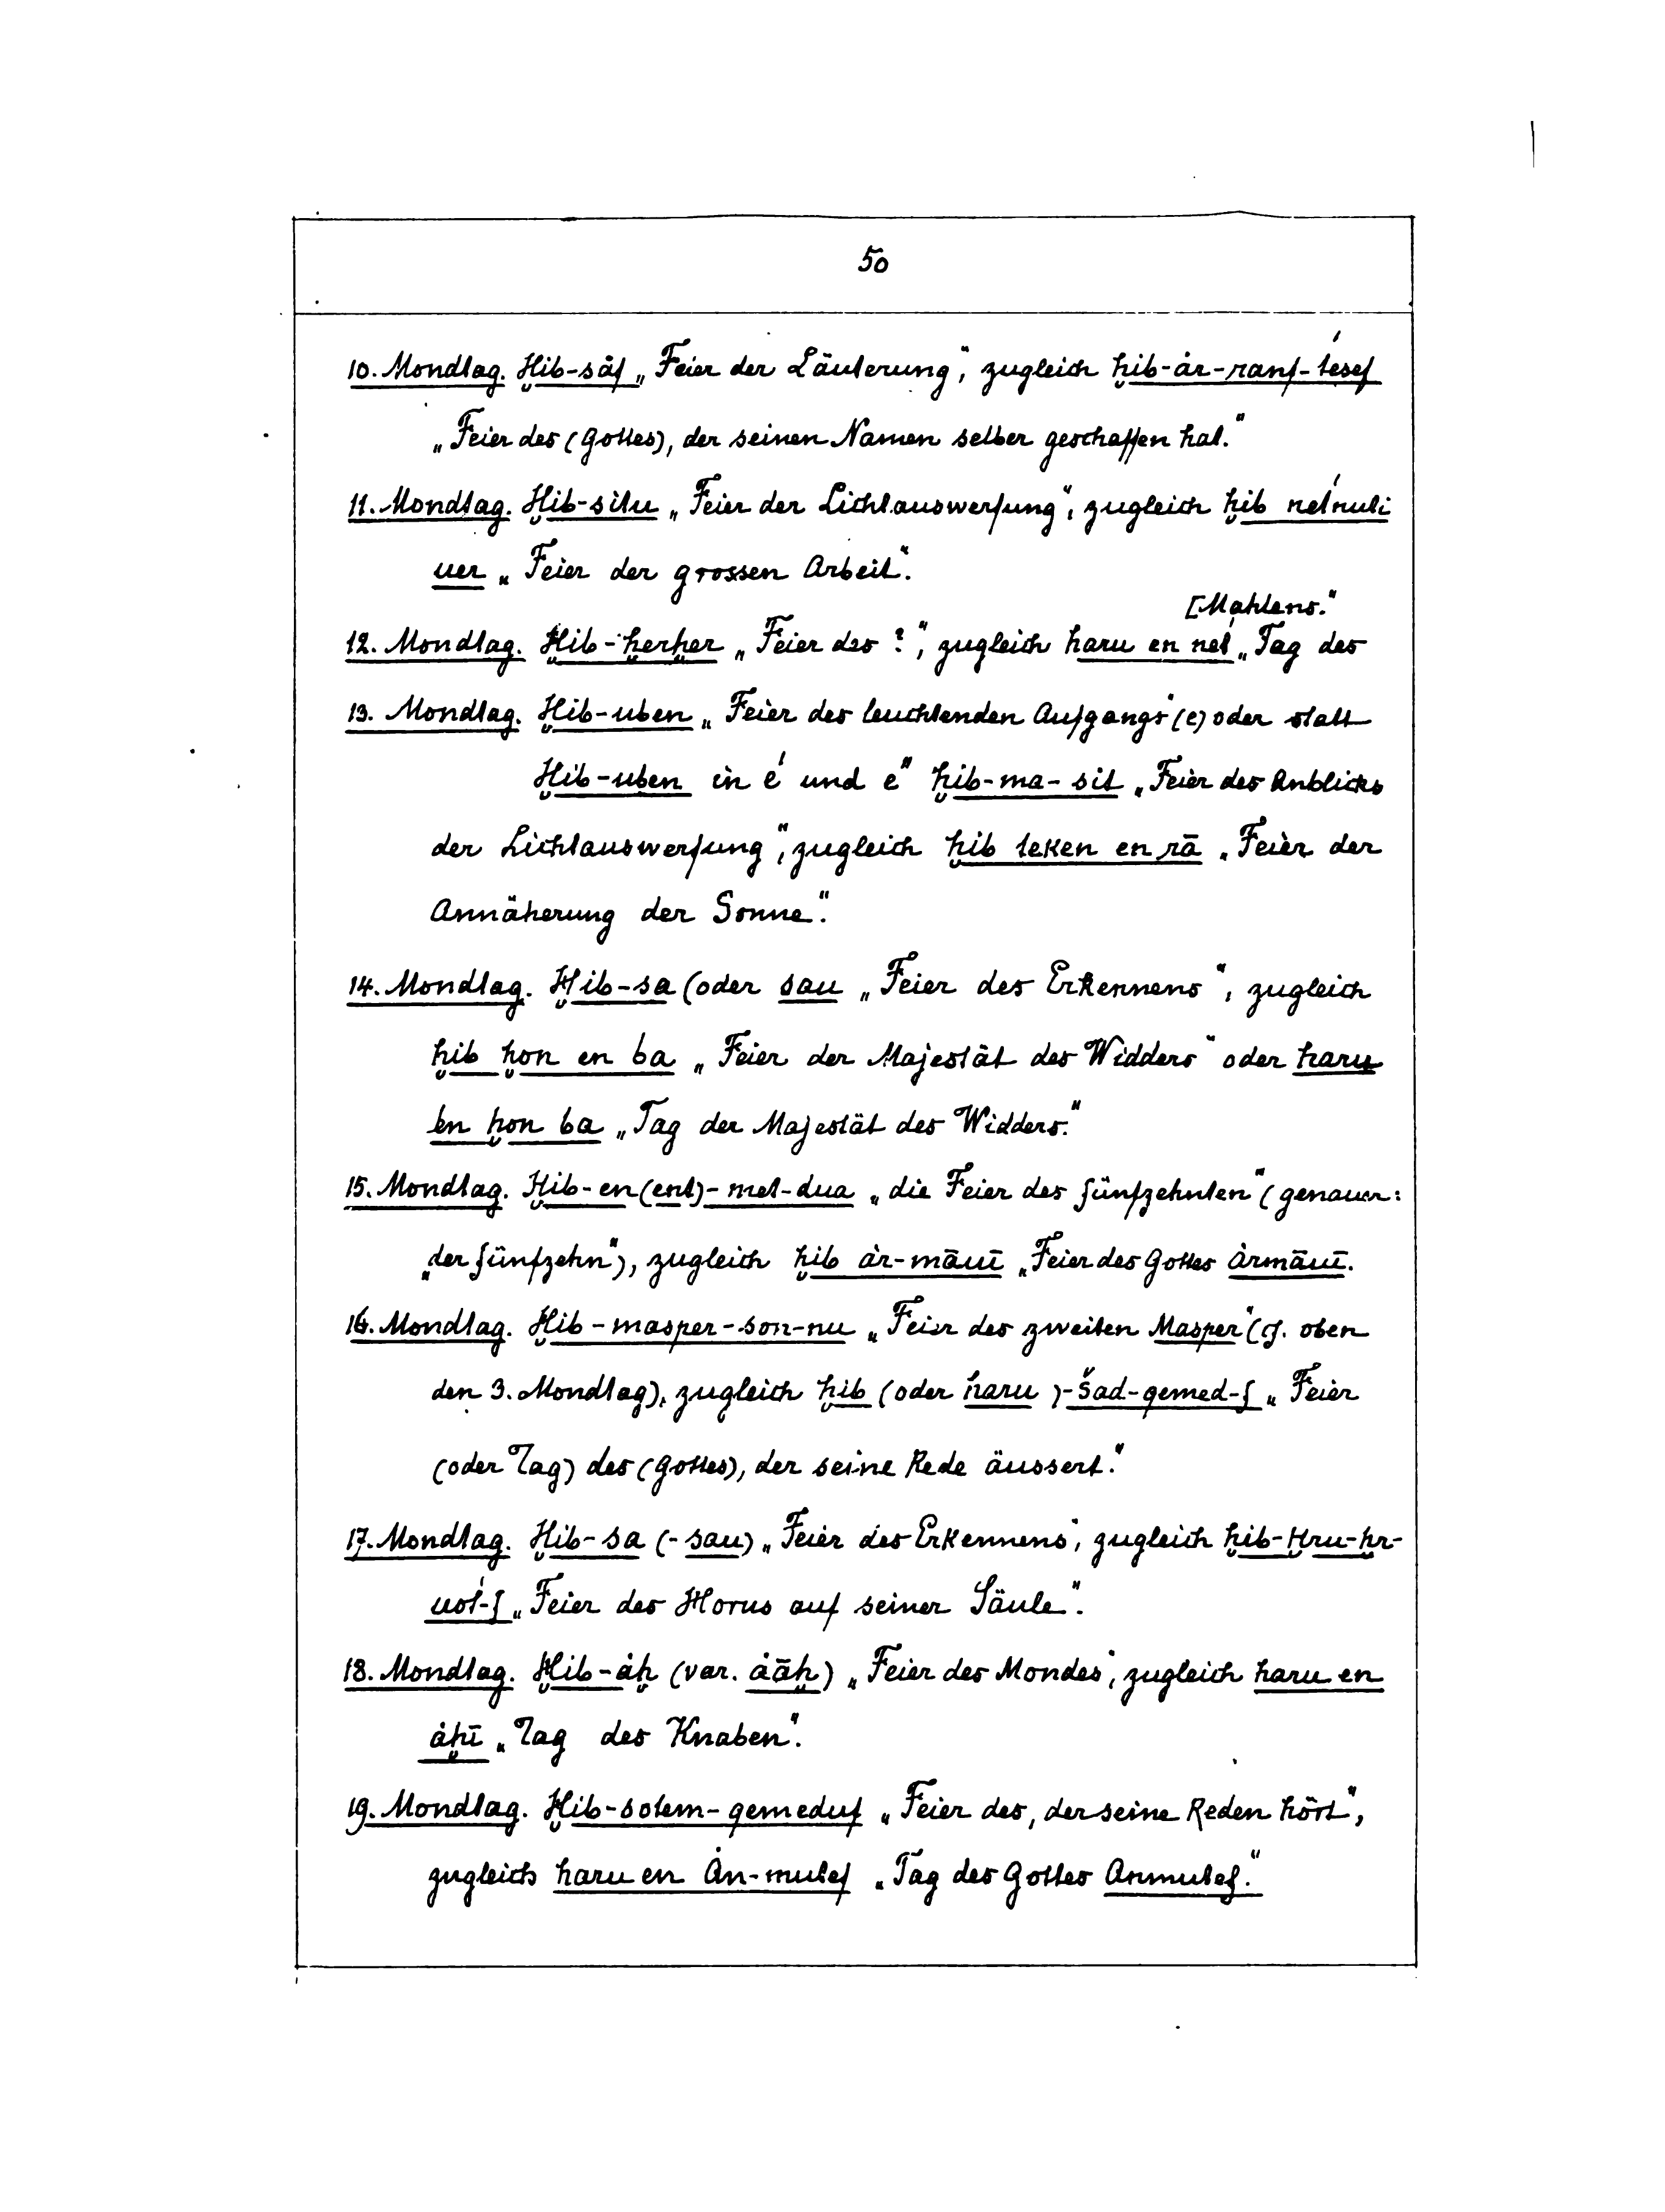 50
10. Mondtag. Ḥib-sȧf „Feier der Läuterung“, zugleich ḥib-ȧr-ranf-t́esef
„Feier des (Gottes), der seinen Namen selber geschaffen hat.“
11. Mondtag. Ḥib-situ „Feier der Lichtauswerfung“, zugleich ḥib net́nuti
uer „Feier der grossen Arbeit“.
[Mahlens.“
12. Mondtag. Ḥib-ḥerḥer „Feier des ?“, zugleich haru en net́ „Tag des
13. Mondtag. Ḥib-uben „Feier des leuchtenden Aufgangs“ (e) oder statt
Ḥib-uben in e' und e" ḥib-ma-sit „Feier des Anblicks
der Lichtauswerfung“, zugleich ḥib teken en rā „Feier der
Annäherung der Sonne“.
14. Mondtag. Ḥib-sa (oder sau „Feier des Erkennens“, zugleich
ḥib ḥon en ba „Feier der Majestät des Widders“ oder haru
en ḥon ba „Tag der Majestät des Widders.“
15. Mondtag. Ḥib-en (ent)-met-dua „die Feier des fünfzehnten“ (genauer:
„der fünfzehn“), zugleich ḥib ȧr-māuī „Feier des Gottes ȧrmāuī.
16. Mondtag. Ḥib-masper-son-nu „Feier des zweiten Masper“ (cf. oben
den 3. Mondtag), zugleich ḥib (oder haru)-šad-qemed-f „Feier
(oder Tag) des (Gottes), der seine Rede äussert.“
17. Mondtag. Ḥib-sa (-sau) „Feier des Erkennens“, zugleich ḥib-Ḥru-ḥr-
uot́-f „Feier des Horus auf seiner Säule“.
18. Mondtag. Ḥib-ȧḥ (var. ȧāḥ) „Feier des Mondes“, zugleich haru en
ȧḥī „Tag des Knaben“.
19. Mondtag. Ḥib-sotem-qemeduf „Feier des, der seine Reden hört“,
zugleich haru en Ȧn-mutef „Tag des Gottes Anmutef.“